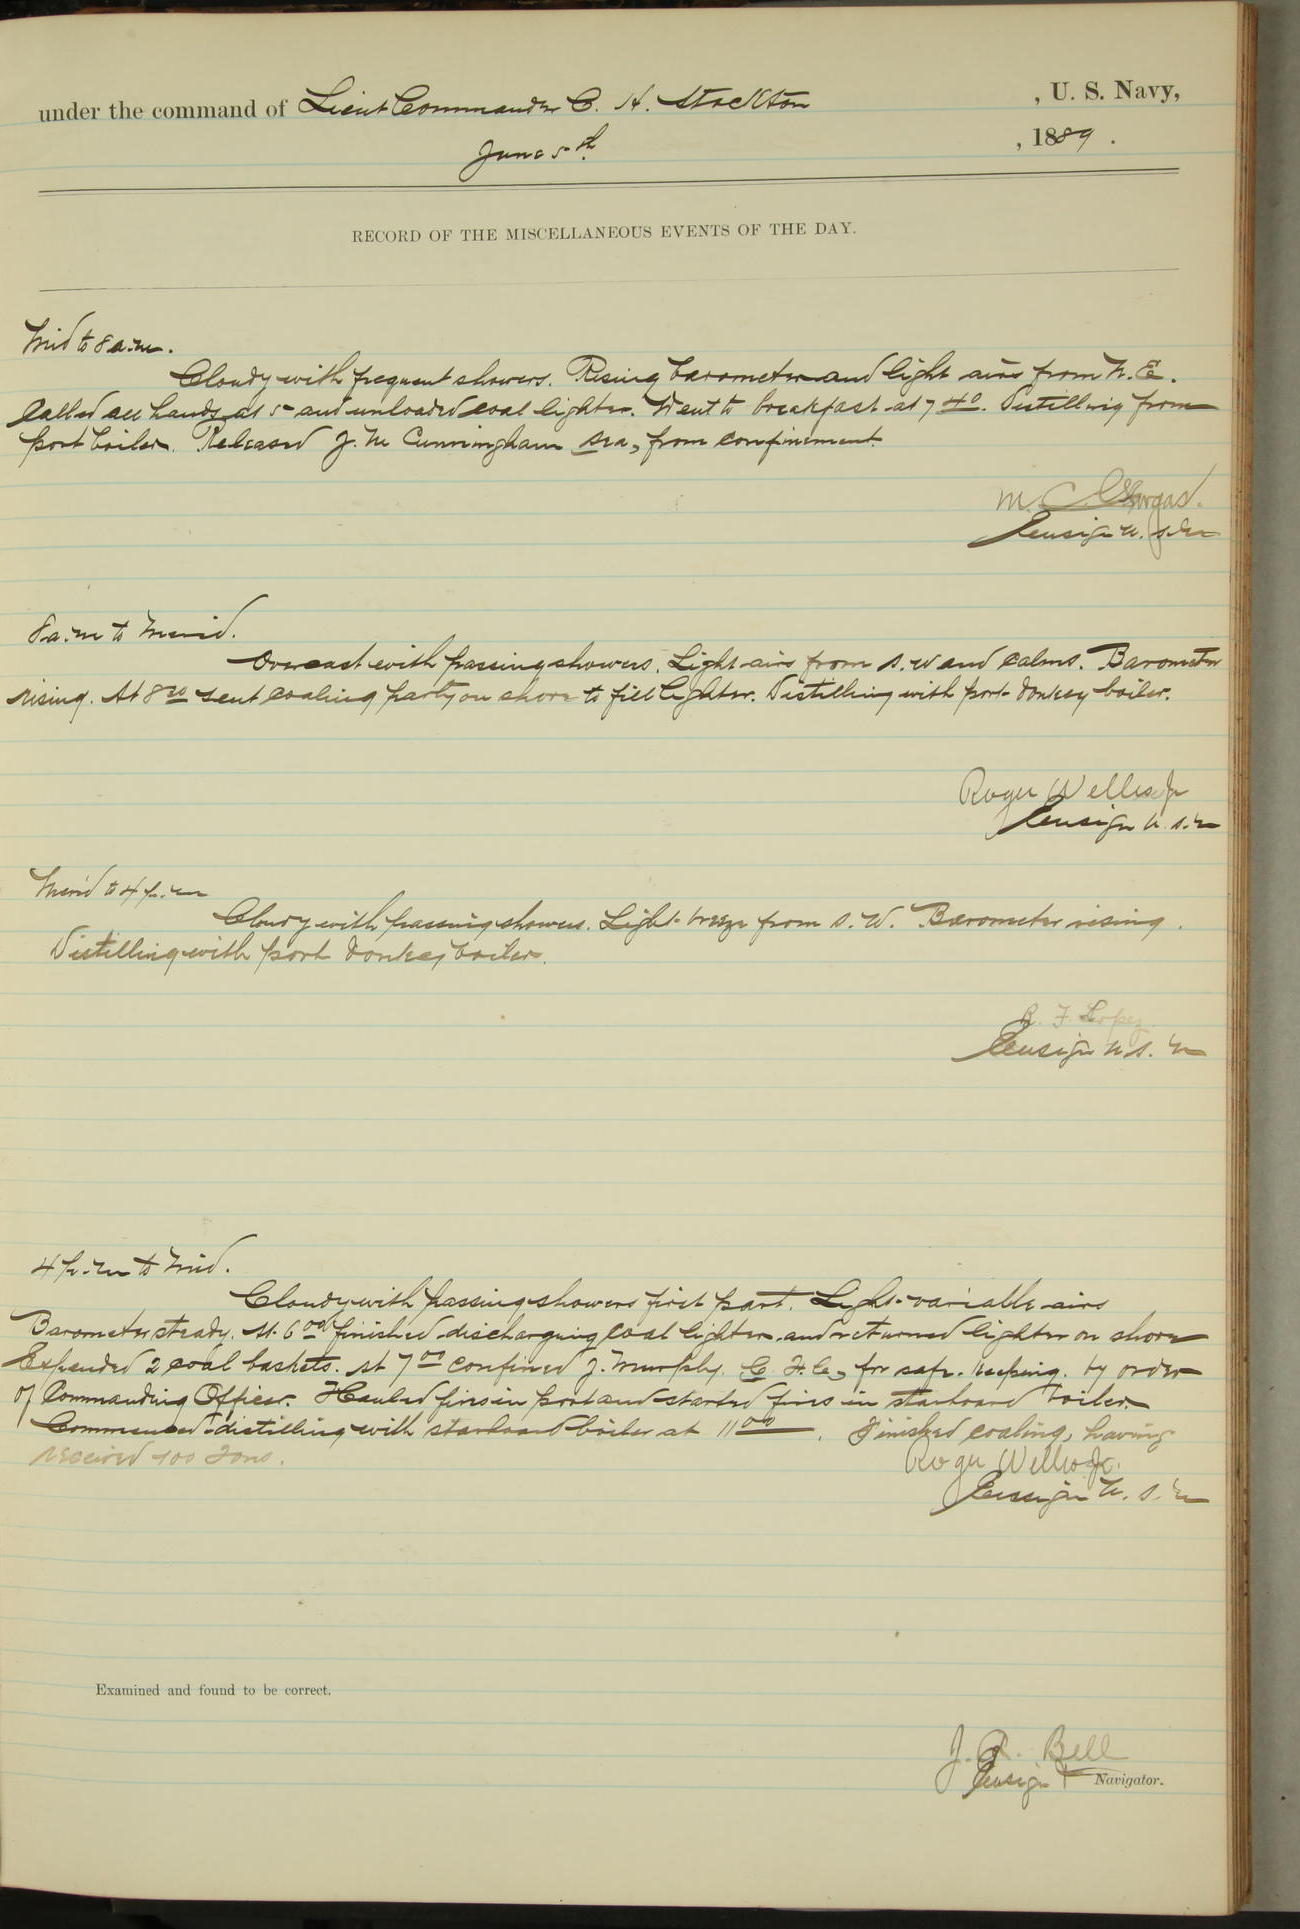 under the command of Lieut Commander C. H. Stockton , U. S. Navy,
June 5th , 1889 .
RECORD OF THE MISCELLANEOUS EVENTS OF THE DAY.
Mid to 8 a.m.
Cloudy with frequent showers. Rising barometer and light airs from N. E.
Called all hands at 5 and unloaded coal lighter. Went to breakfast at 7 40. Distilling from
port boiler. Released J. M Cunningham Sea, from confinement.
M. C. Gorgas.
Ensign U. S. N
8 a.m to Merid.
Overcast with passing showers. Light airs from S. W and calms. Barometer
rising. At 8 20 sent coaling party on shore to fill lighter. Distilling with port donkey boiler.
Roger Welles Jr
Ensign U. S. N
Merid to 4 p.m
Cloudy with passing showers. Light breeze from S. W. Barometer rising.
Distilling with port donkey boiler.
R. F. Lopez
Ensign U S. N
4 p.m to Mid.
Cloudy with passing showers first part. Light variable airs
Barometer steady. At 6 00 finished discharging coal lighter and returned lighter on shore
Expended 2 coal baskets. At 7 00 confined J. Murphy. C. H. C, for safe keeping. by order
of Commanding Officer. Hauled fires in port and started fires in starboard boiler.
Commenced distilling with starboard boiler at 11 00. Finished coaling, having
received 100 Tons.
Roger Welles Jr.
Ensign U. S. N
Examined and found to be correct.
J. A. Bell
Ensign Navigator.